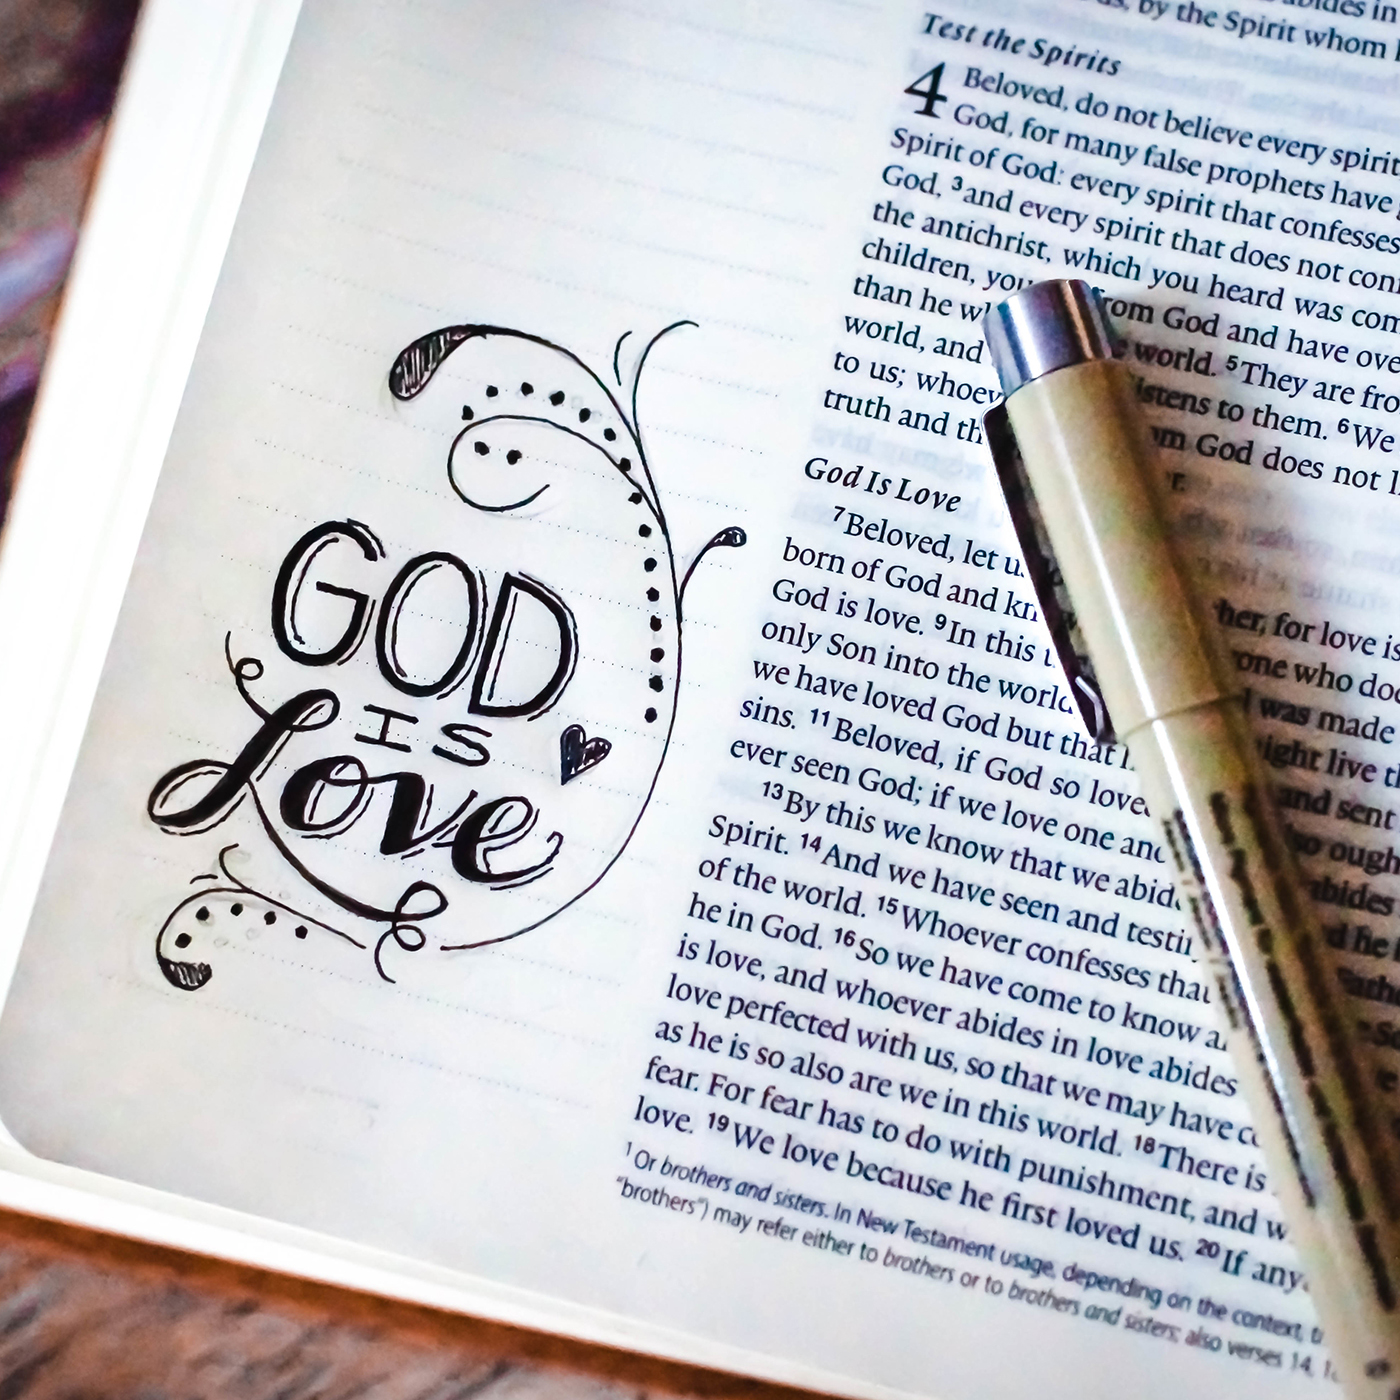 GOD
IS
Love
abides in
by the Spirit whom
Test the Spirits
4 Beloved, do not believe every spirit
God, for many false prophets have
Spirit of God: every spirit that confesses
God, 3 and every spirit that does not
the antichrist, which you heard was
children, you from God and have
than he world. 5 They are
world, and to them. 6 We
to us; God does not
truth and
God Is Love
7 Beloved, let for love
born of God and one who
God is love. 9 In this was made
only Son into the world live
we have loved God but that and sent
sins. 11 Beloved, if God so
ever seen God; if we love one abides
13 By this we know that we and he
Spirit. 14 And we have seen and
of the world. 15 Whoever confesses that
he in God. 16 So we have come to know
is love, and whoever abides in love abides
love perfected with us, so that we may have
as he is so also are we in this world. 18 There is
fear. For fear has to do with punishment, and
love. 19 We love because he first loved us. 20 If
1 Or brothers and sisters. In New Testament usage, depending on the context,
"brothers") may refer either to brothers or to brothers and sisters; also verses 14,